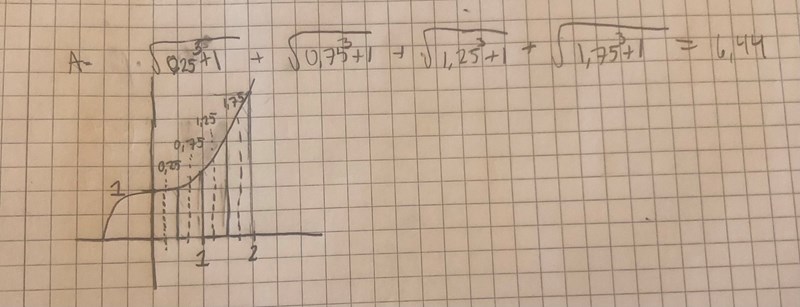 A= √0,25³+1 + √0,75³+1 + √1,25³+1 + √1,75³+1 = 6,44
1,75
1,25
0,75
0,25
1
1 2